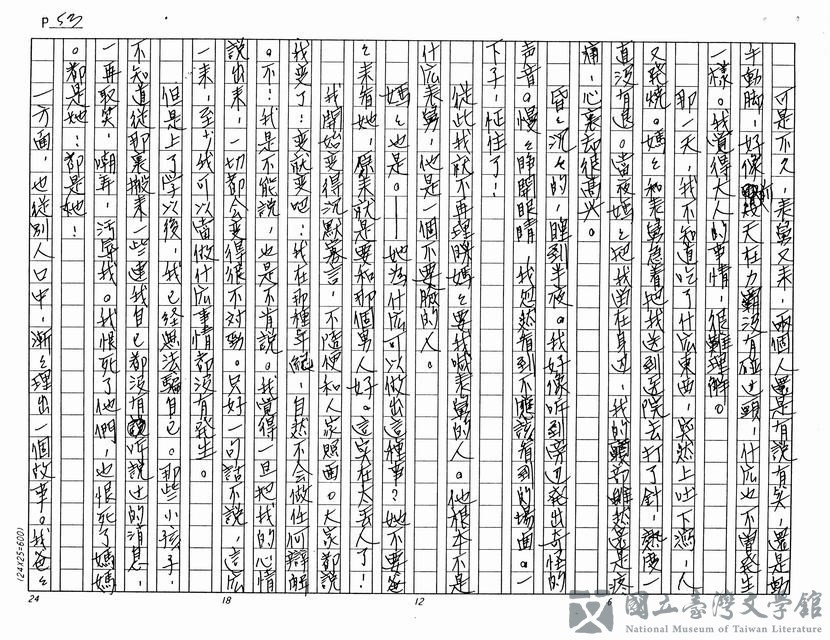 P 53
可是不久，表舅又來，兩個人還是有說有笑，還是動
手動脚，好像前幾天在力霸沒有碰過頭，什広也不曾發生
一樣。我覺得大人的事情，很難理解。
那一天，我不知道吃了什広東西，突然上吐下瀉，人
又発燒。媽々和表舅急着把我送到医院去打了針，熱度一
直沒有退。當夜媽々把我留在身边，我的頭部雖然還是疼
痛，心裏却很高兴。
昏々沉々的，睡到半夜。我好像听到旁边発出奇怪的
声音。慢々睜開眼睛，我忽然看到不應該看到的場面。一
下子，怔住了！
從此我就不再理睬媽々要我喊表舅的人。他根本不是
什広表舅，他是一個不要臉的人。
媽々也是。——她為什広可以做出這種事？她不要爸
々來看她，原來就是要和那個男人好。這实在太丟人了！
我開始变得沉默寡言，不隨便和人家照面。大家都說
我变了：变就变吧：我在那種年紀，自然不会做任何辯解
。不！我是不能說，也是不肯說。我覺得一旦把我的心情
說出來，一切都会变得很不対勁。只好一句話不說，這広
一來，至少我可以當做什広事情都沒有發生。
但是上了学以後，我已經無法騙自己。那些小孩子，
不知道從那裏搬來一些連我自己都沒有听說过的消息，
一再取笑，嘲弄，污辱我。我恨死了他們，也恨死了媽媽
。都是她：都是她：
一方面，也從別人口中，漸々理出一個故事。我爸々
24
18
12
6
(24X25=600)
國立臺灣文學館
National Museum of Taiwan Literature